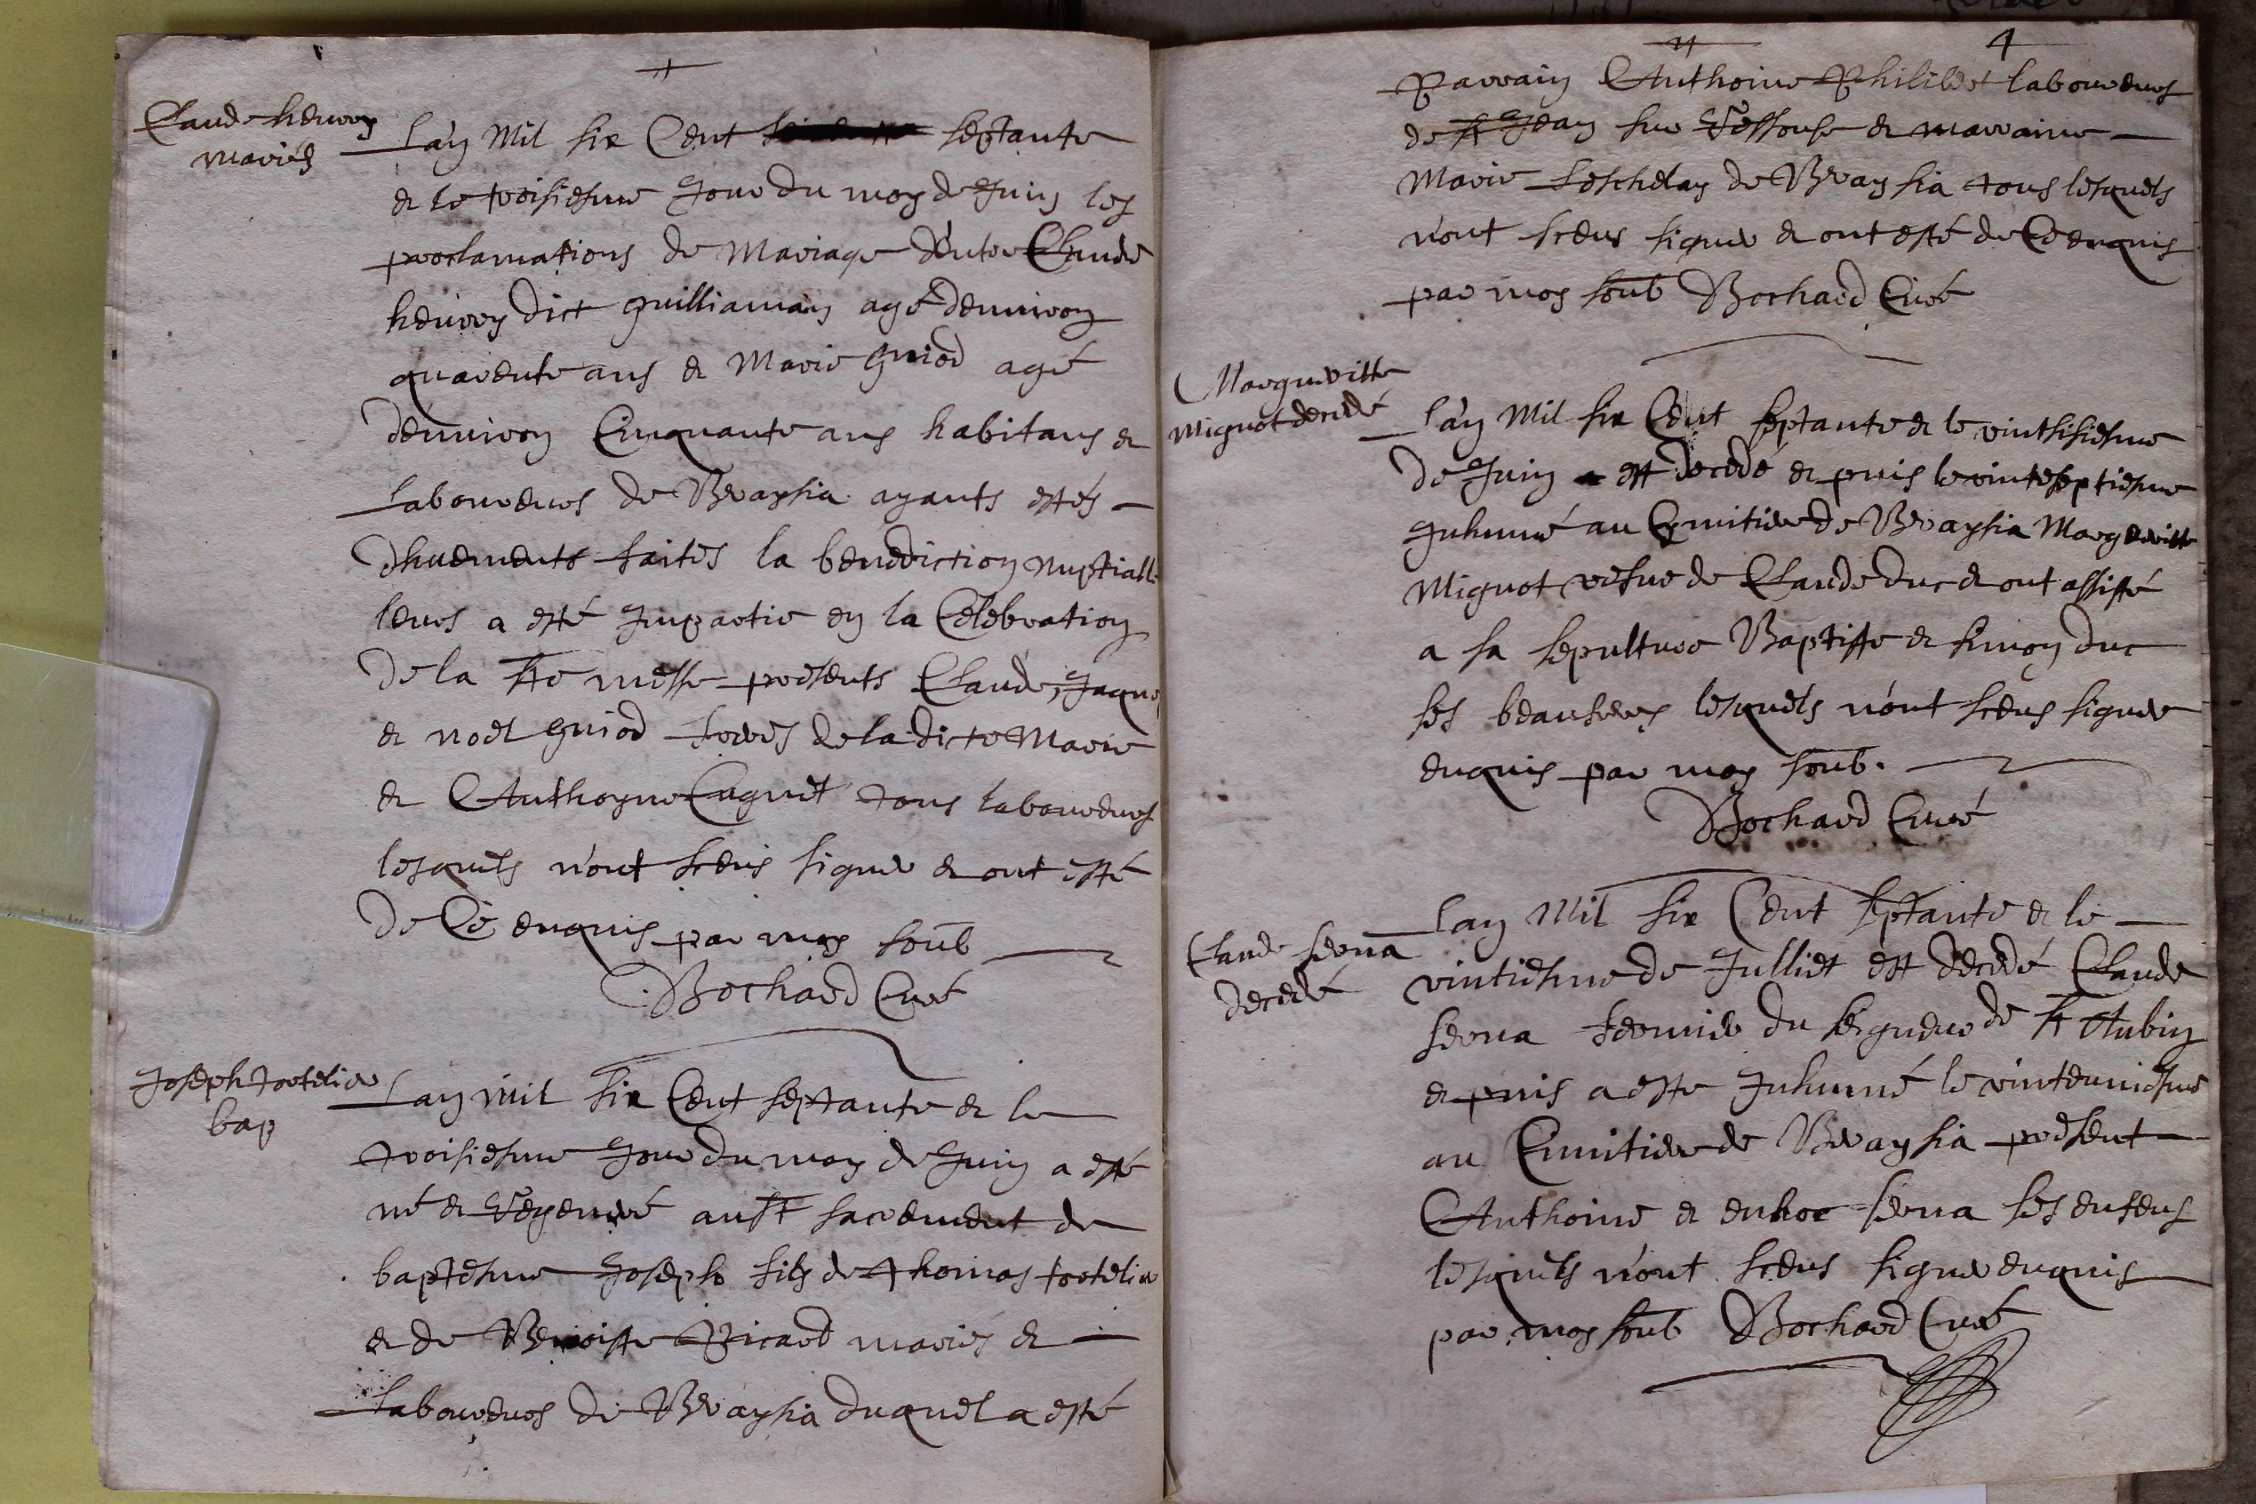 Claude henrry
mariés
Lan Mil six Cent septante
et le troisiesme Jour du moy de Juin les
proclamations de Mariage d'entre Claude
henrry dict guilliaman agé denuiron
quarente ans et Marie guiod agé
denuiron Cinquante ans habitans et
laboureurs de Braysia ayants estés
dhuements faites la benediction nuptiall
leurs a esté Impartie en la Celebration
de la Ste messe presents Claude, Jaque
et noel guiod freres de la dicte Marie
et Anthoyne Caguet tous laboureurs
lesquels n'ont sceus signer et ont esté
de Ce enquis par moy soub
Bochard Curé
Joseph tortelier
bap
Lan mil six Cent septante et le
troisiesme Jour du moy de Juin a esté
né et Regeneré au St sacrement de
baptesme Joseph fils de thomas tortelier
et de Benoiste Picard mariés et
laboureurs de Braysia duquel a esté
4
Parrain Anthoine Philibet laboureurs
de St Jean sur Ressouse et marraine
Marie Leschelay de Braysia tous lesquels
n'ont sceus signer et ont esté de Ce enquis
par moy soub Bochard Curé
Margueritte
Mignot decedé
Lan Mil six Cent septante et le vintsisiesme
de Juin est decedé et puis le vinteseptiesme
Inhumé au Cymitier de Braysia Margueritte
Mignot vefue de Claude duc et ont assisté
a sa sepulture Baptiste et simon duc
ses beaufreres lesquels n'ont sceus signer
enquis par moy soub.
Bochard Curé
Claude serua
decedé
Lan Mil six Cent septante et le
vintiesme de Julliet est decedé Claude
serua fermier du seigneur de St Aubin
et puis a este Inhumé le vinteuniesme
au Cimitier de Braysia present
Anthoine et enhoc serua ses enfens
lesquels n'ont sceus signer enquis
par moy soub Bochard Curé